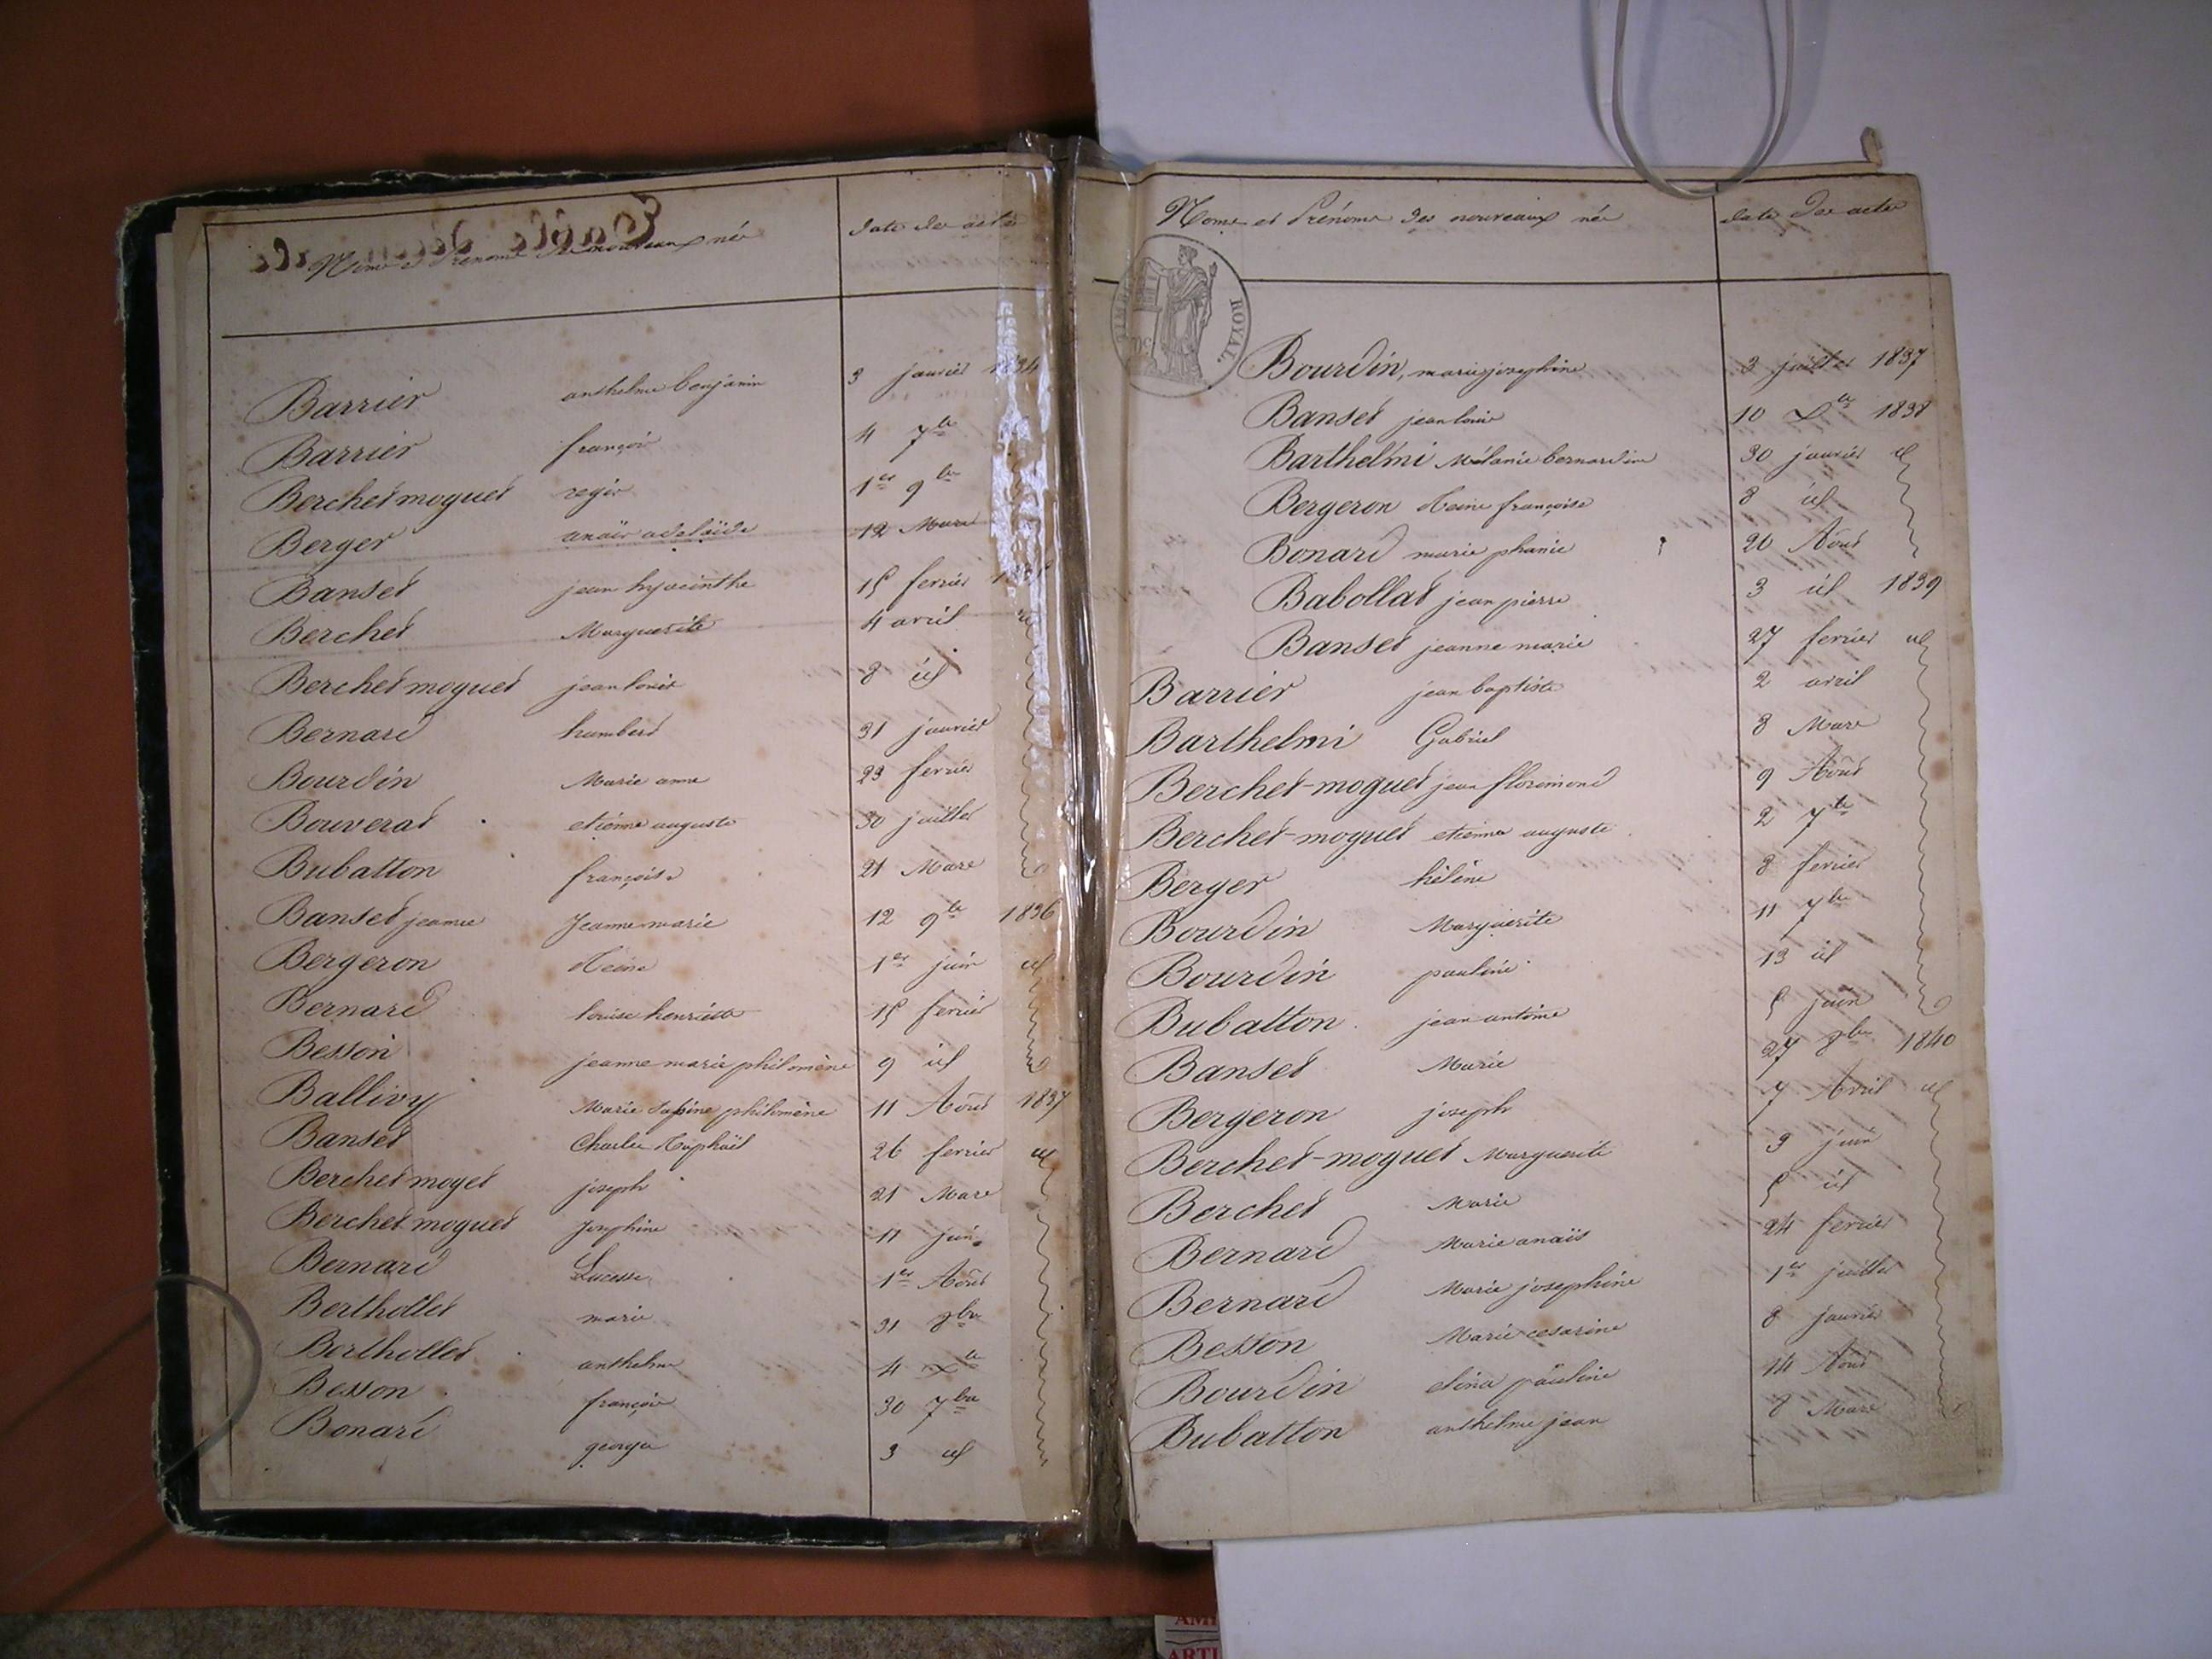 Noms et Prénoms des nouveaux nés date des actes
Barrier anthelme benjamin 3 janvier 1834
Barrier françois 4 7bre
Berchet moguet régis 1er 9bre
Berger anaïs adelaïde 12 Mars
Banset jean hyacinthe 15 fevrier
Berchet Marguerite 4 avril
Berchet moguet jean louis 8 id
Bernard humbert 31 janvier
Bourdin Marie anne 23 fevrier
Bouverat etienne auguste 30 juillet
Bubatton françoise 21 Mars
Banset jeanne Jeanne marie 12 9bre 1836
Bergeron Reine 1er juin id
Bernard louise henriette 15 fevrier
Besson jeanne marie philomène 9 id
Ballivy Marie philomène 11 Août 1837
Banset Charles Raphaël 26 fevrier id
Berchet moget joseph 21 Mars
Berchet moguet Josephine 17 juin
Bernard 1er Août
Berthollet marie 31 8bre
Berthollet anthelme 4 Xbre
Besson françois 30 7bre
Bonard georges 3 id
Noms et Prénoms des nouveaux nés date des actes
TIMBRE ROYAL.
Bourdin, marie josephine 3 juillet 1837
Banset jean louis 10 Xbre 1838
Barthelmi Mélanie bernardine 30 janvier id
Bergeron Reine françoise 8 id
Bonard marie phanie 20 Août
Babollat jean pierre 3 id 1839
Banset jeanne marie 27 fevrier id
Barrier jean baptiste 2 avril
Barthelmi Gabriel 8 Mars
Berchet-moguet jean florimond 9 Août
Berchet-moguet etienne auguste 2 7bre
Berger hélène 8 fevrier
Bourdin Marguerite 11 7bre
Bourdin pauline 13 id
Bubatton jean antoine 5 juin
Banset Marie 27 8bre 1840
Bergeron joseph 7 Avril id
Berchet-moguet Marguerite 9 juin
Berchet Marie 5 id
Bernard Marie anaïs 24 fevrier
Bernard Marie josephine 1er juillet
Besson Marie cesarine 8 janvier
Bourdin elina pauline 14 Août
Bubatton anthelme jean 8 Mars